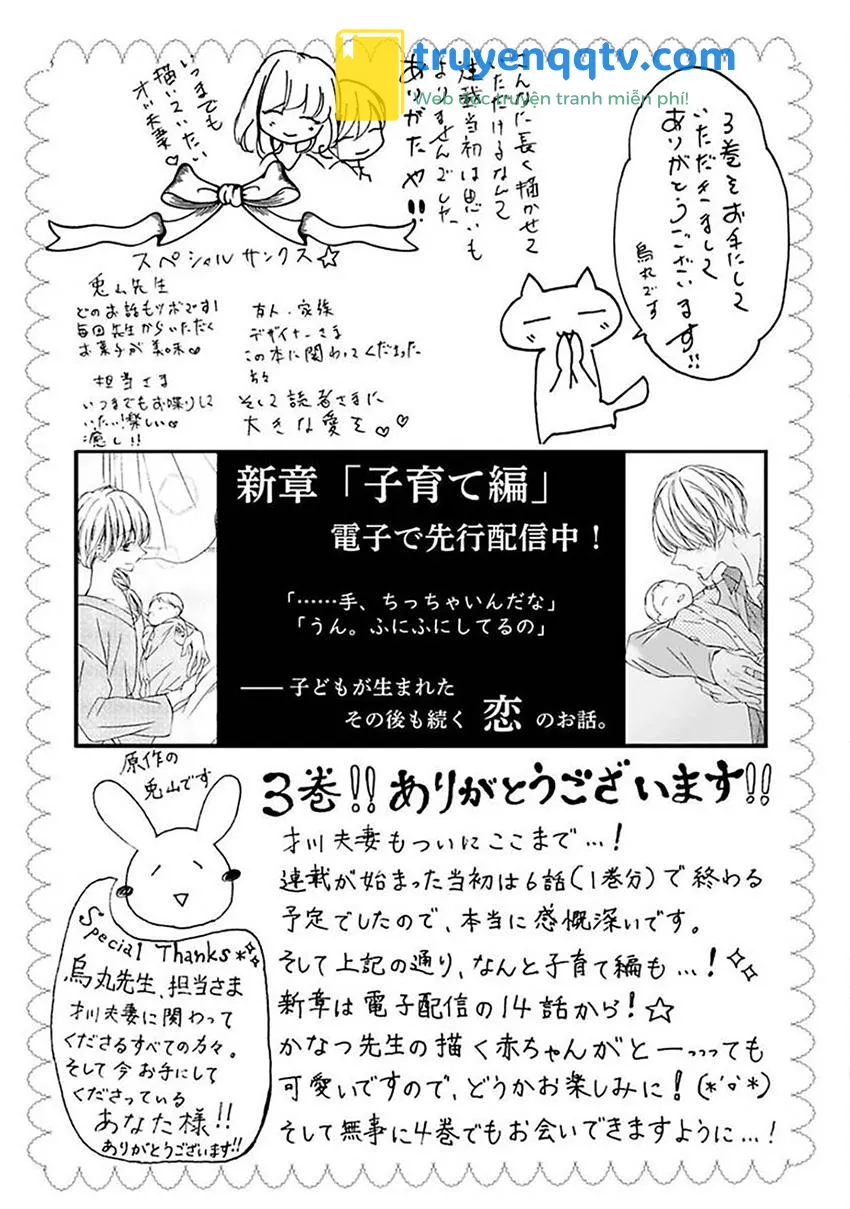 truyenqqtv.com
Web đọc truyện tranh miễn phí!
3巻をお手にして
いただきまして
ありがとうございます!!
烏丸です
こんなに長く描かせて
いただけるなんて
連載当初は思いも
よりませんでした
ありがたや!!
いつまでも
描いていたい
才川夫妻♡
スペシャルサンクス☆
兎山先生
どのお話もツボです!
毎回先生からいただく
お菓子が美味♡
担当さま
いつまでもお喋りして
いたい!楽しい♡
癒し!!
友人・家族
デザイナーさま
この本に関わってくださった
方々
そして読者さまに
大きな愛を♡♡
新章「子育て編」
電子で先行配信中!
「……手、ちっちゃいんだな」
「うん。ふにふにしてるの」
――子どもが生まれた
その後も続く 恋 のお話。
原作の
兎山です
3巻!!ありがとうございます!!
才川夫妻もついにここまで…!
連載が始まった当初は6話(1巻分)で終わる
予定でしたので、本当に感慨深いです。
そして上記の通り、なんと子育て編も…!
新章は電子配信の14話から!☆
かなつ先生の描く赤ちゃんがとーっっっても
可愛いですので、どうかお楽しみに!(*'ο'*)
そして無事に4巻でもお会いできますように…!
Special Thanks*
烏丸先生、担当さま
才川夫妻に関わって
くださるすべての方々。
そして今お手にして
くださっている
あなた様!!
ありがとうございます!!